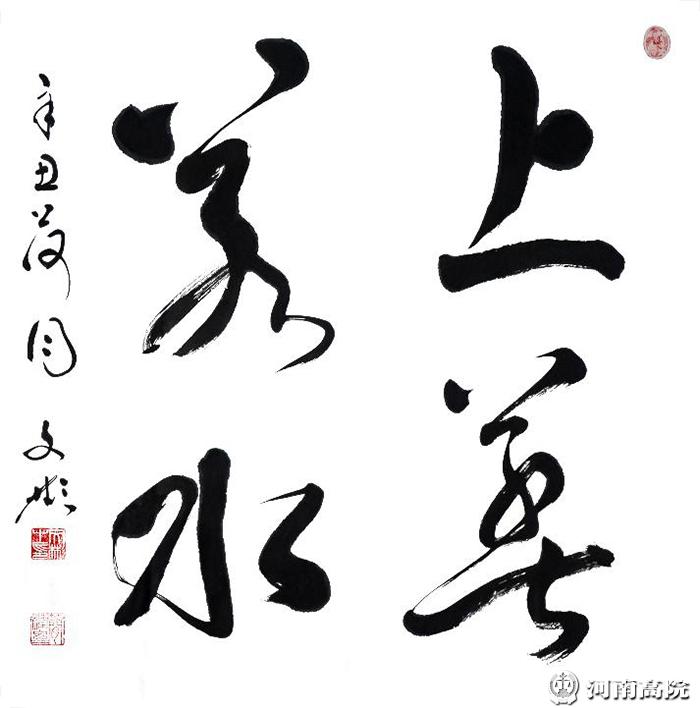 上善
若水
辛丑荷月 文彬
河南高院